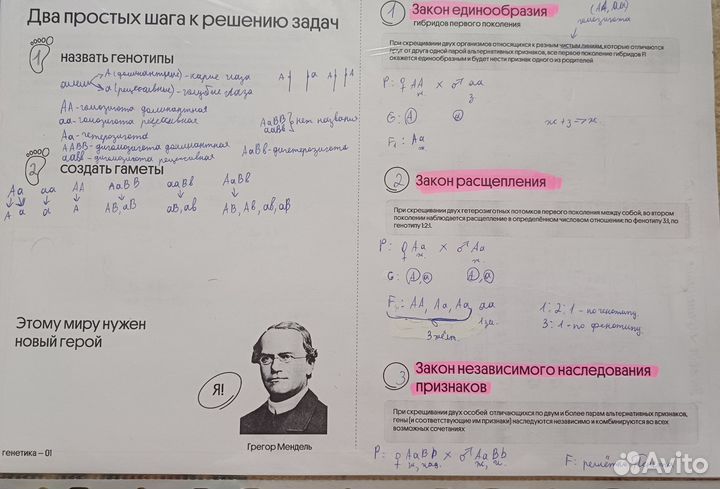 Два простых шага к решению задач
1 назвать генотипы
аллели
А (доминантные) - карие глаза
а (рецессивные) - голубые глаза
АА - гомозигота доминантная
аа - гомозигота рецессивная
Аа - гетерозигота
ААВВ - дигомозигота доминантная
аавв - дигомозигота рецессивная
АаВВ
ааВв } нет названия
АаВв - дигетерозигота
2 создать гаметы
Аа аа АА АаВВ ааВв АаВв
А а а А АВ, аВ аВ, ав АВ, Ав, ав, аВ
Этому миру нужен
новый герой
Я!
Грегор Мендель
генетика – 01
1 Закон единообразия
гибридов первого поколения
гомозигота
При скрещивании двух организмов относящихся к разным чистым линиям, которые отличаются
друг от друга одной парой альтернативных признаков, все первое поколение гибридов F1
окажется единообразным и будет нести признак одного из родителей
P: ♀ АА × ♂ аа
ж. з
G: А а
ж + з => ж.
F₁: Аа
ж.
2 Закон расщепления
При скрещивании двух гетерозиготных потомков первого поколения между собой, во втором
поколении наблюдается расщепление в определённом числовом отношении: по фенотипу 3:1, по
генотипу 1:2:1.
P: ♀ Аа × ♂ Аа
ж. ж.
G: А, а А, а
F: АА, Аа, Аа, аа
3 жел.
1:2:1 - по генотипу
3:1 - по фенотипу
3 Закон независимого наследования
признаков
При скрещивании двух особей отличающихся по двум и более парам альтернативных признаков,
гены (и соответствующие им признаки) наследуются независимо и комбинируются во всех
возможных сочетаниях
P: ♀ АаВb × ♂ АаВb
F: решётка
Avito